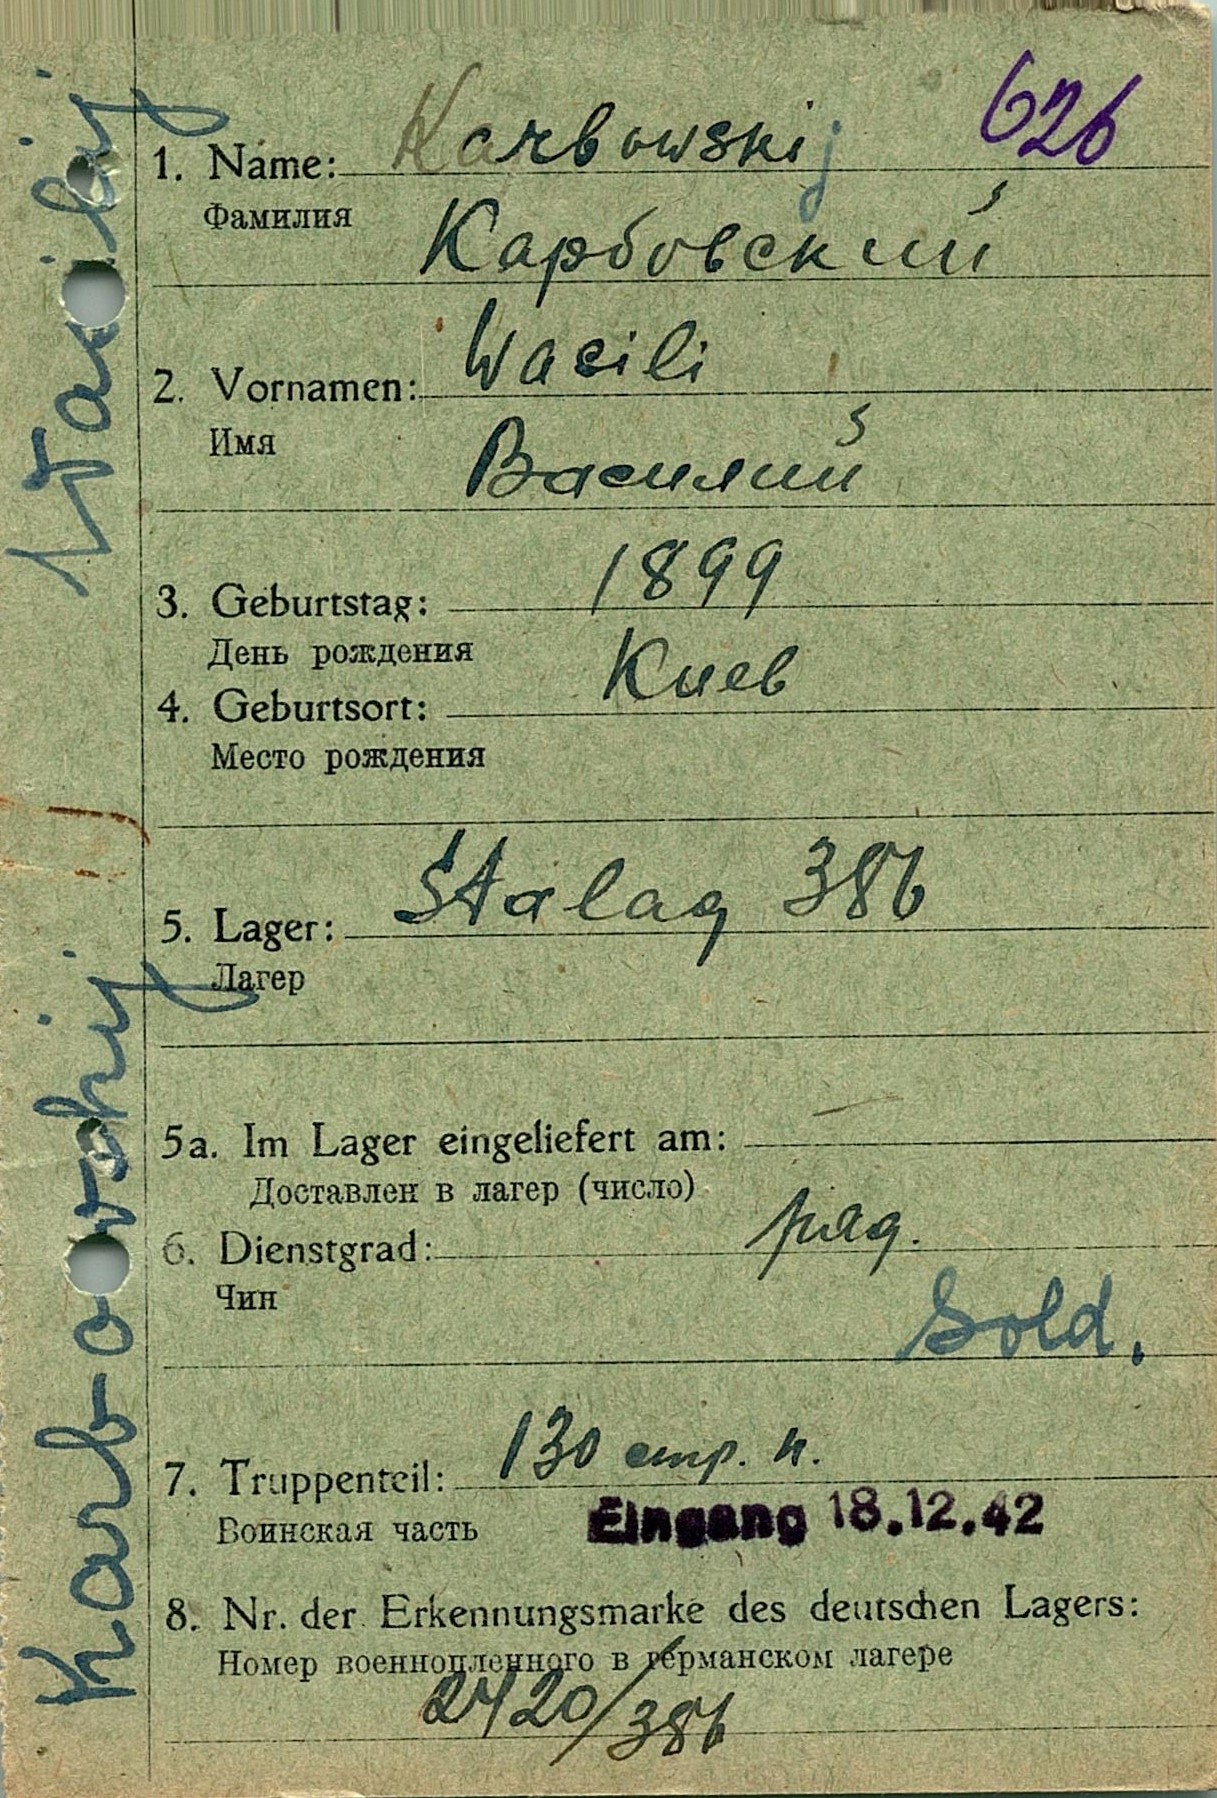 626
1. Name: Karbowskij
Фамилия
Карбовский
2. Vornamen: Wasili
Имя
Василий
3. Geburtstag: 1899
День рождения
4. Geburtsort: Киев
Место рождения
5. Lager: Stalag 386
Лагер
5a. Im Lager eingeliefert am:
Доставлен в лагер (число)
6. Dienstgrad: ряд.
Чин
Sold.
7. Truppenteil: 130 стр. п.
Воинская часть
Eingang 18.12.42
8. Nr. der Erkennungsmarke des deutschen Lagers:
Номер военнопленного в германском лагере
2420/386
Karbowskij Wasilij